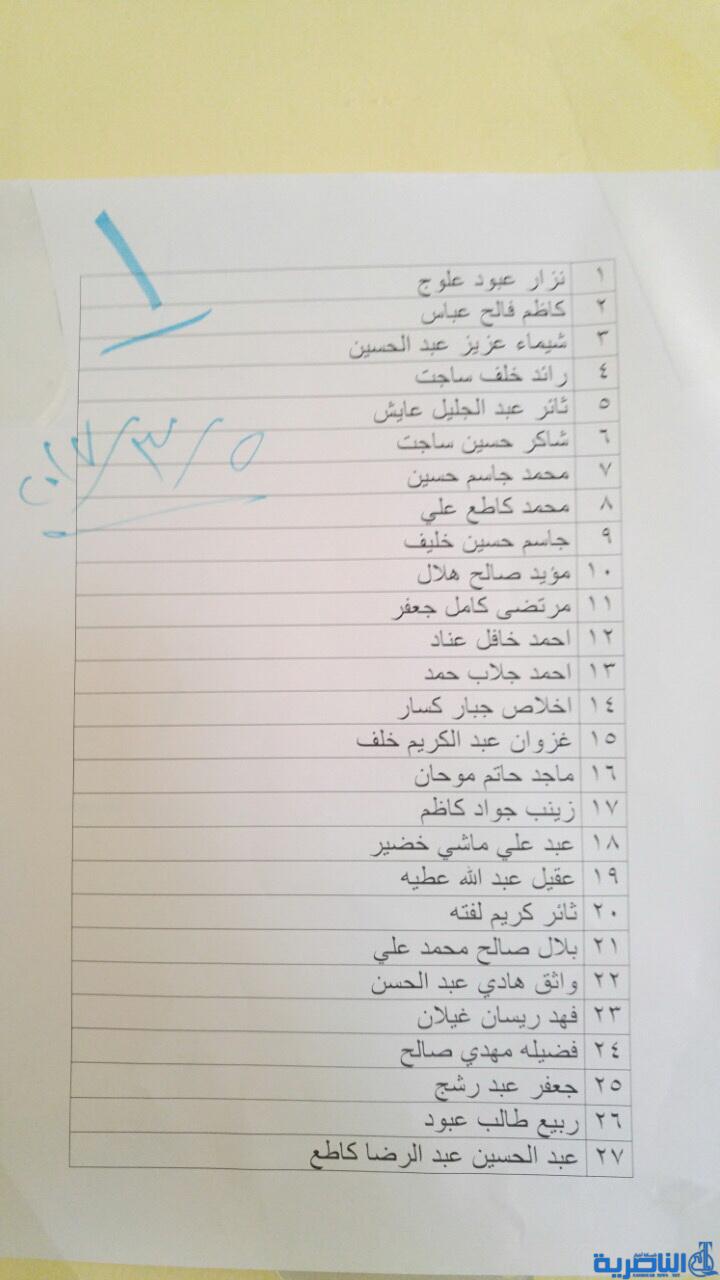 ١
١ نزار عبود علوج
٢ كاظم فالح عباس
٣ شيماء عزيز عبد الحسين
٤ رائد خلف ساجت
٥ ثائر عبد الجليل عايش
٦ شاكر حسين ساجت
٢٠١٧/٣/٥
٧ محمد جاسم حسين
٨ محمد كاطع علي
٩ جاسم حسين خليف
١٠ مؤيد صالح هلال
١١ مرتضى كامل جعفر
١٢ احمد خافل عناد
١٣ احمد جلاب حمد
١٤ اخلاص جبار كسار
١٥ غزوان عبد الكريم خلف
١٦ ماجد حاتم موحان
١٧ زينب جواد كاظم
١٨ عبد علي ماشي خضير
١٩ عقيل عبد الله عطيه
٢٠ ثائر كريم لفته
٢١ بلال صالح محمد علي
٢٢ واثق هادي عبد الحسن
٢٣ فهد ريسان غيلان
٢٤ فضيله مهدي صالح
٢٥ جعفر عبد رشج
٢٦ ربيع طالب عبود
٢٧ عبد الحسين عبد الرضا كاطع
شبكة أخبار
الناصرية